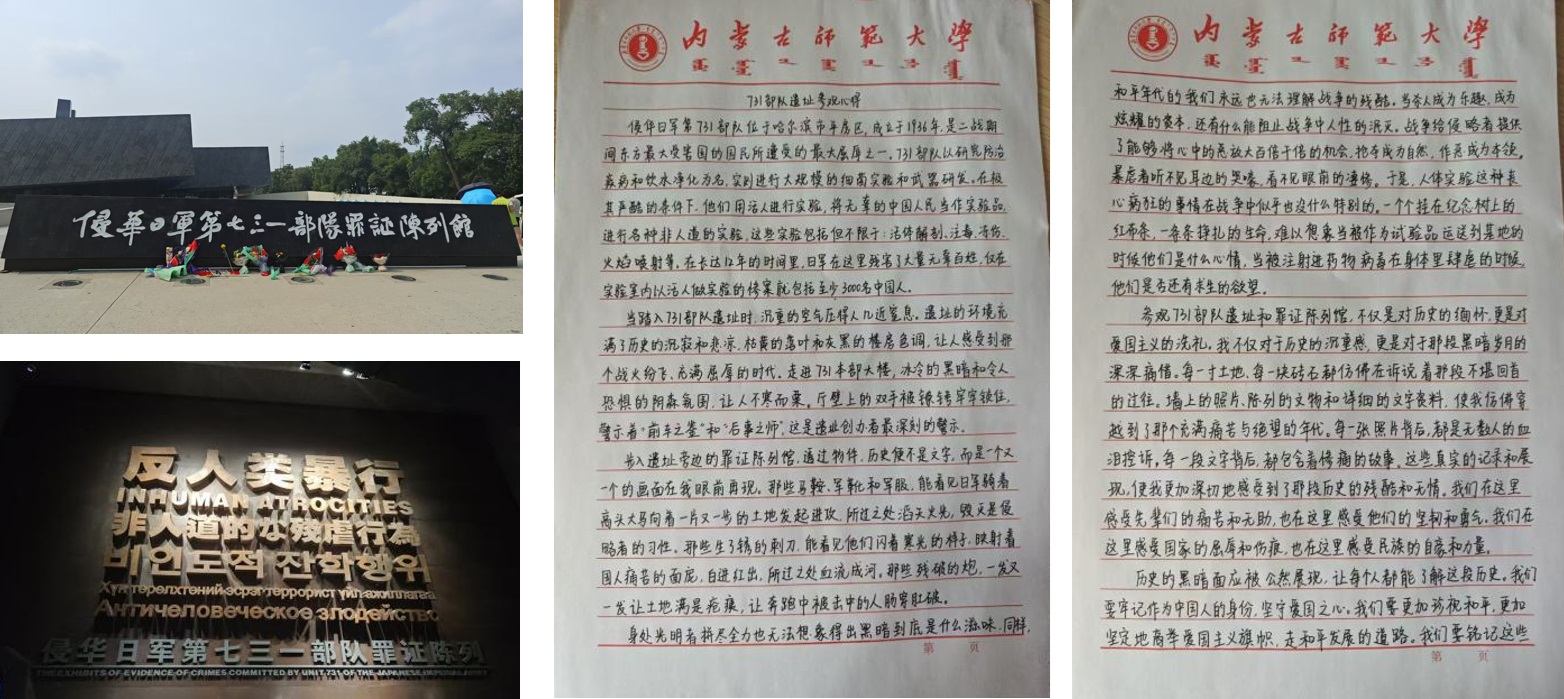 侵華日軍第七三一部隊罪証陳列館
反人类暴行
INHUMAN ATROCITIES
非人道的な残虐行為
비인도적 잔학행위
Хүн төрөлхтөний эсрэг террорист үйл ажиллагаа
Античеловеческое злодейство
侵华日军第七三一部队罪证陈列
THE EXHIBITS OF EVIDENCE OF CRIMES COMMITTED BY UNIT 731 OF THE JAPANESE IMPERIAL ARMY
内蒙古师范大学
731部队遗址参观心得
侵华日军第731部队位于哈尔滨市平房区,成立于1936年,是二战期
间东方最大受害国的国民所遭受的最大屈辱之一。731部队以研究防治
疾病和饮水净化为名,实则进行大规模的细菌实验和武器研发。在极
其严酷的条件下,他们用活人进行实验,将无辜的中国人民当作实验品,
进行各种非人道的实验,这些实验包括但不限于:活体解剖、注毒、冻伤、
火焰喷射等。在长达12年的时间里,日军在这里残害了大量无辜百姓,仅在
实验室内以活人做实验的惨案就包括至少3000名中国人。
当踏入731部队遗址时,沉重的空气压得人几近窒息。遗址的环境充
满了历史的沉寂和悲凉,枯黄的落叶和灰黑的楼房色调,让人感受到那
个战火纷飞、充满屈辱的时代。走进731本部大楼,冰冷的黑暗和令人
恐惧的阴森氛围,让人不寒而栗。厅壁上的双手被镣铐牢牢锁住,
警示着“前车之鉴”和“后事之师”,这是遗址创办者最深刻的警示。
步入遗址旁边的罪证陈列馆,通过物件,历史便不是文字,而是一个又
一个的画面在我眼前再现。那些马鞍、军靴和军服,能看见日军骑着
高头大马向着一片又一步的土地发起进攻,所过之处滔天火光,毁灭是侵
略者的习性。那些生了锈的刺刀,能看见他们闪着寒光的样子,映射着
国人痛苦的面庞,白进红出,所过之处血流成河。那些残破的炮,一发又
一发让土地满是疮痕,让奔跑中被击中的人肠穿肚破。
身处光明者拼尽全力也无法想象得出黑暗到底是什么滋味,同样,
第 页
内蒙古师范大学
和平年代的我们永远也无法理解战争的残酷。当杀人成为乐趣,成为
炫耀的资本,还有什么能阻止战争中人性的泯灭。战争给侵略者提供
了能够将心中的恶放大百倍千倍的机会,抢夺成为自然,作恶成为本领,
暴虐者听不见耳边的哭嚎,看不见眼前的凄惨。于是,人体实验这种丧
心病狂的事情在战争中似乎也没什么特别的。一个个挂在纪念树上的
红布条,一条条挣扎的生命,难以想象当被作为试验品运送到基地的
时候他们是什么心情,当被注射进药物病毒在身体里肆虐的时候,
他们是否还有求生的欲望。
参观731部队遗址和罪证陈列馆,不仅是对历史的缅怀,更是对
爱国主义的洗礼。我不仅对于历史的沉重感,更是对于那段黑暗岁月的
深深痛惜。每一寸土地、每一块砖石都仿佛在诉说着那段不堪回首
的过往。墙上的照片、陈列的文物和详细的文字资料,使我仿佛穿
越到了那个充满痛苦与绝望的年代。每一张照片背后,都是无数人的血
泪控诉,每一段文字背后,都包含着惨痛的故事。这些真实的记录和展
现,使我更加深切地感受到了那段历史的残酷和无情。我们在这里
感受先辈们的痛苦和无助,也在这里感受他们的坚韧和勇气。我们在
这里感受国家的屈辱和伤痕,也在这里感受民族的自豪和力量。
历史的黑暗面应被公然展现,让每个人都能了解这段历史。我们
要牢记作为中国人的身份,坚守爱国之心。我们要更加珍视和平,更加
坚定地高举爱国主义旗帜,走和平发展的道路。我们要铭记这些
第 页